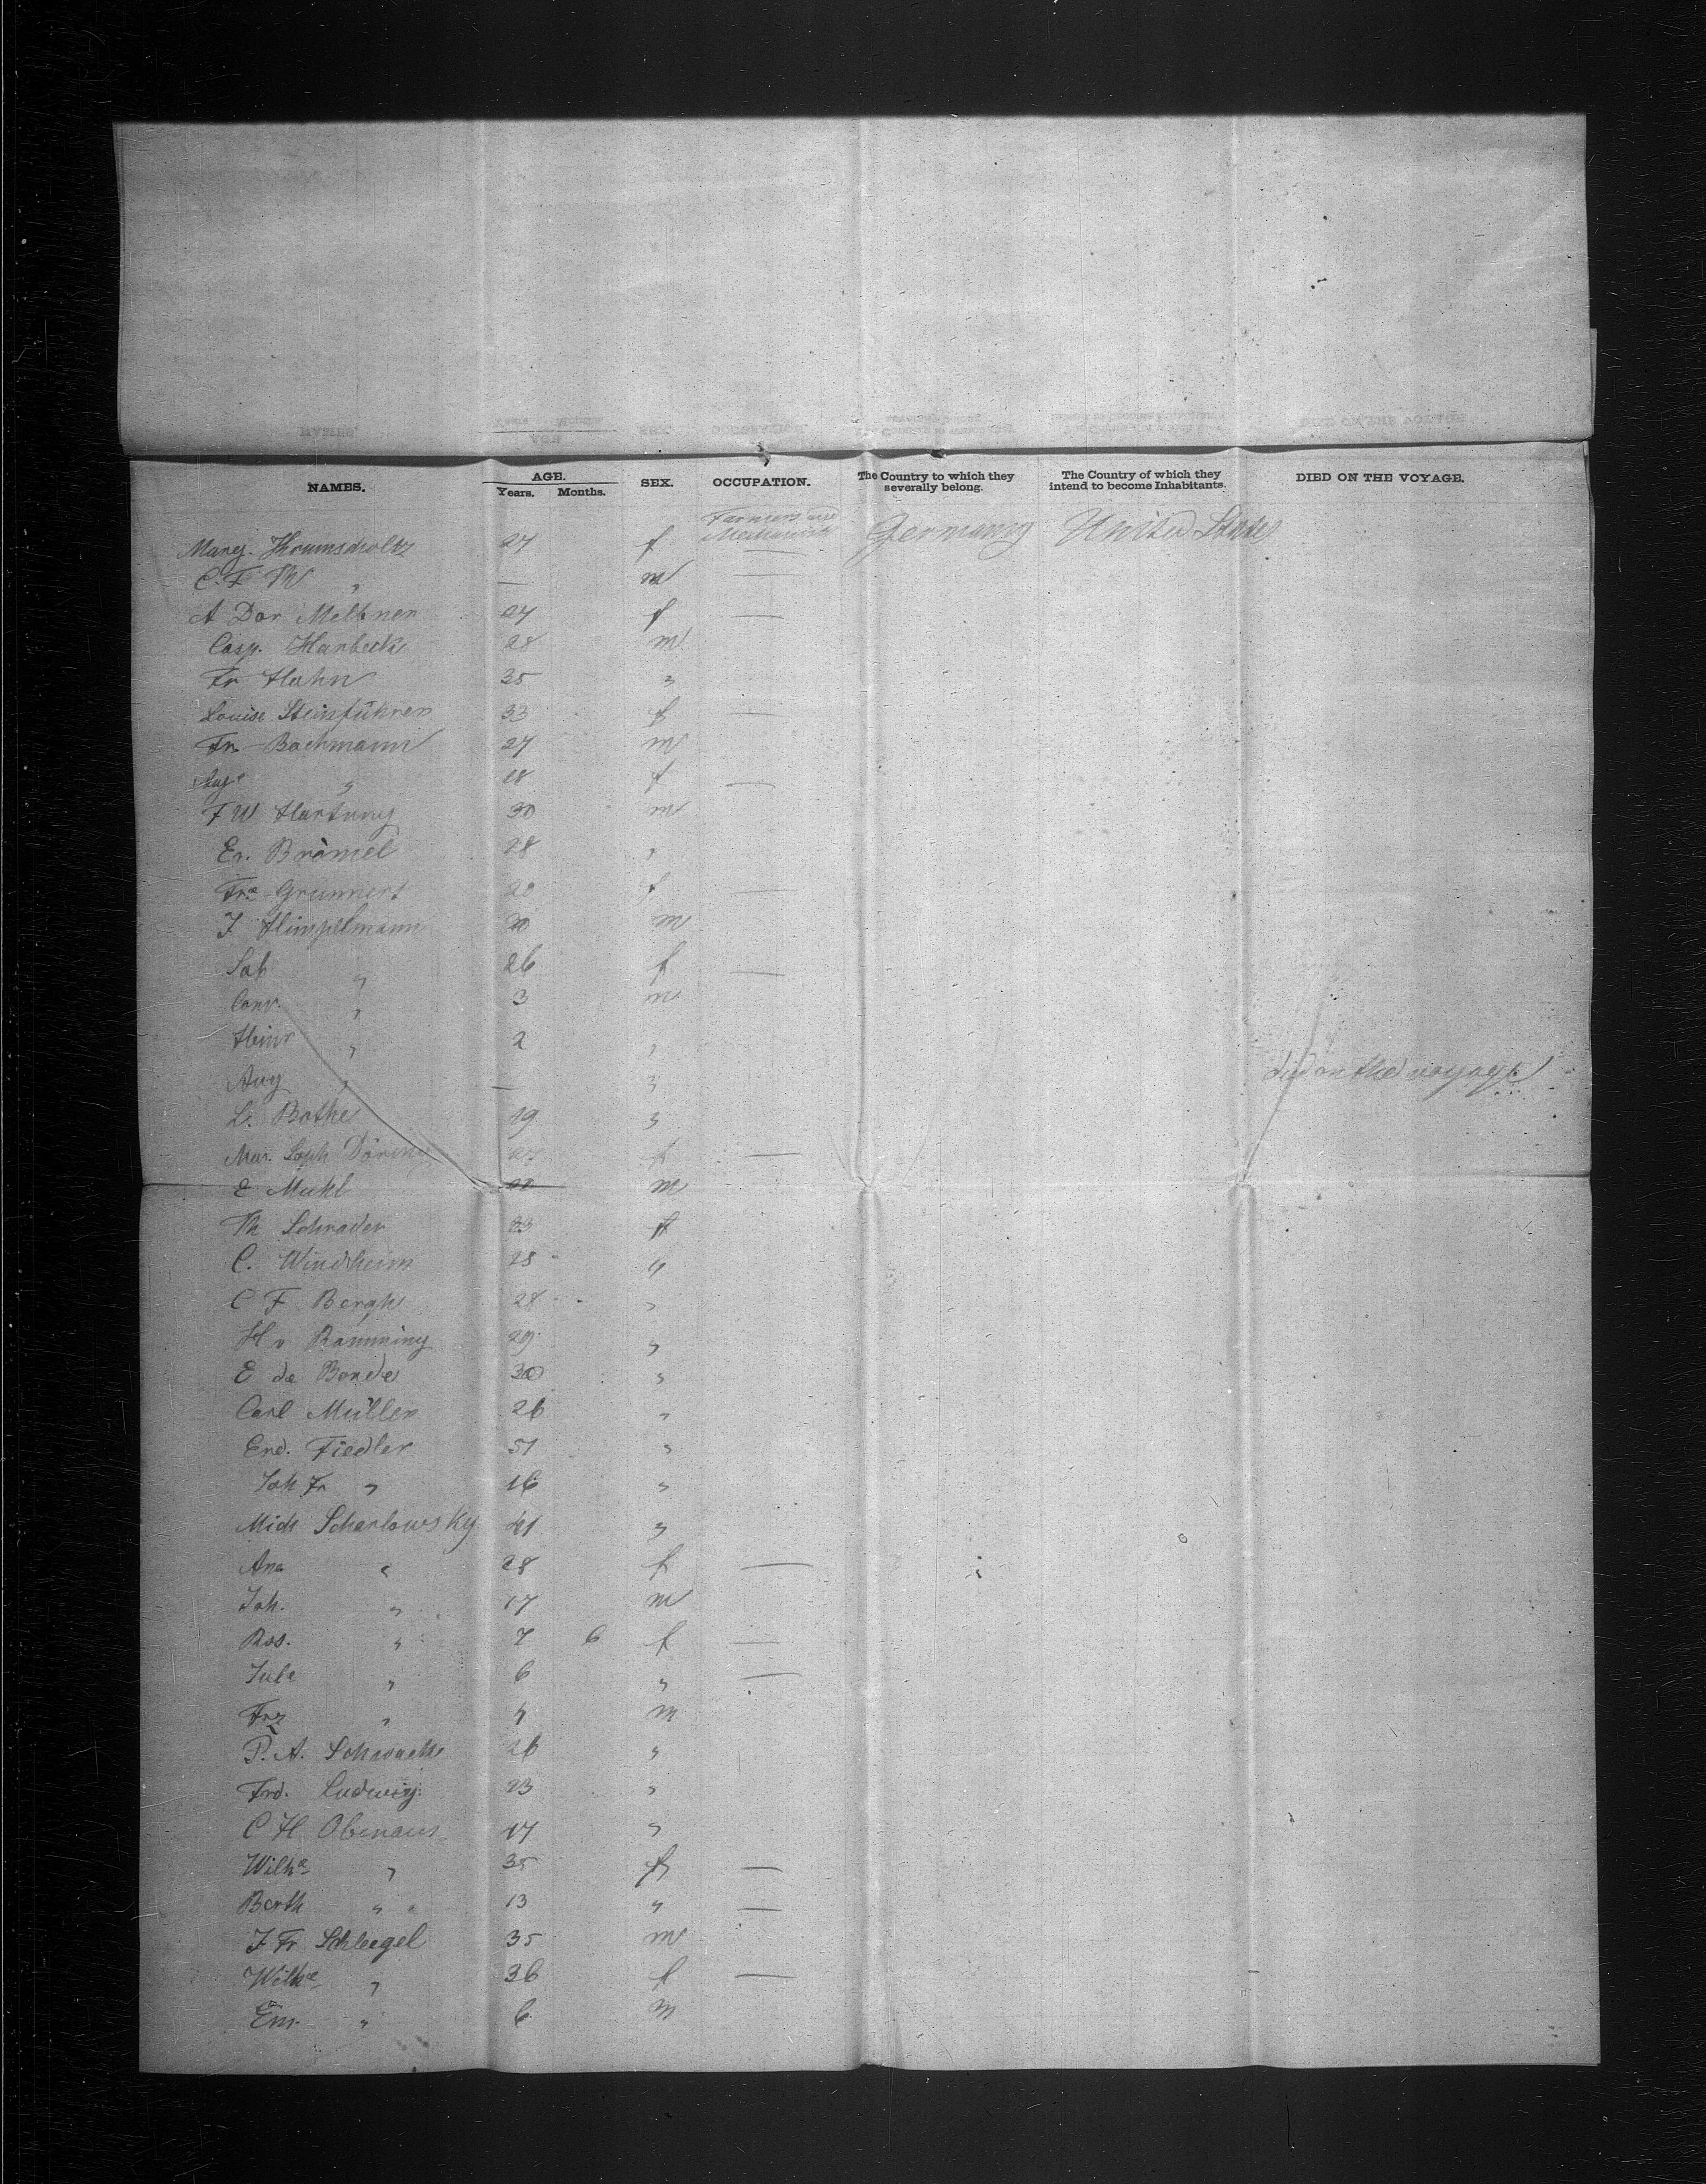 NAMES. AGE. Years. Months. SEX. OCCUPATION. The Country to which they severally belong. The Country of which they intend to become Inhabitants. DIED ON THE VOYAGE.
Farmers and
Mechanics Germany United States
Marg. Krumscholtz 27 f —
C. F. W " — m —
A Dor Meltner 27 f —
Casp. Harbeck 28 m
Fr Hahn 35 "
Louise Steinführer 33 f —
Fr. Bachmann 27 m
Aug " 18 f —
F W Hartung 30 m
Er. Brömel 28 "
Fre Grunnert 20 f —
J Himpelmann 30 m
Sab " 26 f —
Conr. " 3 m
Heinr " 2 "
Aug " — " died on the voyage
L. Bothe 19 "
Mar. Soph Döring f —
E Muhl m
Th Schrader 23
C. Windheim 28 "
C F Bergh 28 "
H v Ramming 29 "
E de Bonde 30 "
Carl Müller 26 "
End. Fiedler 51 "
Joh Fr " 16 "
Mich Scharlowsky 41 "
Ana " 28 f —
Joh. " 17 m
Ros. " 7 6 f —
Jule " 6 " —
Frz " 4 m
P. A. Schwacke 26 "
Frd. Ludwig 23 "
C H Obenaus 47 "
Wilhe " 35 f —
Berth " 13 " —
J Fr Schlegel 35 m
Wilhe " 36 f —
Em. " 6 m